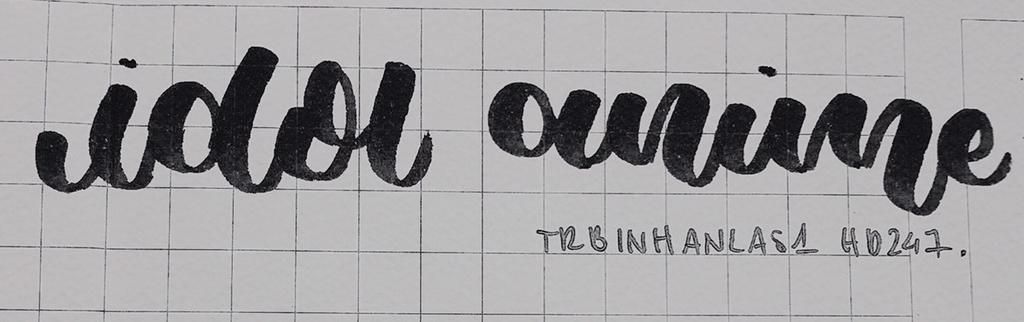 idol anime
TRBINHANLAS1 HD247.